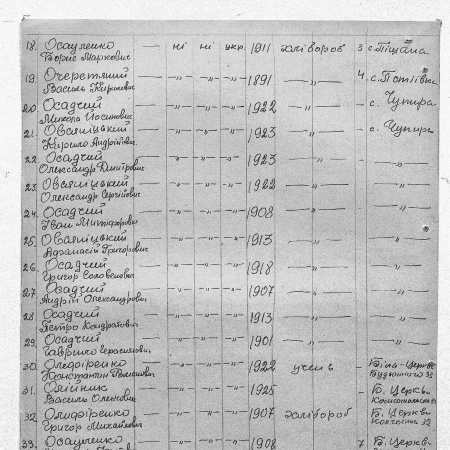 18. Осауленко — ні ні укр. 1911 хлібороб 3 с. Піщана
Борис Маркович
19. Очеретяний — " — " — " — 1891 — " — 4. с. Потіївка
Василь Кирилович
20. Осадчий — " — " — " — 1922 — " — - с. Чупира
Микола Йосипович
21. Овсяніцький — " — " — " — 1923 — " — - с. Чупира
Кирило Андрійович
22. Осадчий — " — " — " — 1923 — " — - — " —
Олександр Дмитрович
23. Овсяніцький — " — " — " — 1922 — " — - — " —
Олександр Сергійович
24. Осадчий — " — " — " — 1908 — " — - — " —
Іван Митифорович
25. Овсяніцький — " — " — " — 1913 — " — - — " —
Афанасій Григорович
26. Осадчий — " — " — " — 1918 — " — - — " —
Григор
27. Осадчий — " — " — " — 1907 — " — - — " —
Андрій Олександрович
28. Осадчий — " — " — " — 1913 — " — - — " —
Петро Кондратович
29. Осадчий — " — " — " — 1901 — " — - — " —
Гаврило Герасимович
30. Олефіренко — " — " — " — 1922 учень - Біла-Церква
Костянтин Романович Будьонного 93
31. Олійник — " — " — " — 1925 — - Б. Церква
Василь Олекович Комсомольська
32. Олифіренко — " — " — " — 1907 хлібороб - Б. Церква
Григор Михайлович Колгоспна 32
33. Осауленко — " — " — " — 1908 7 Б. Церква